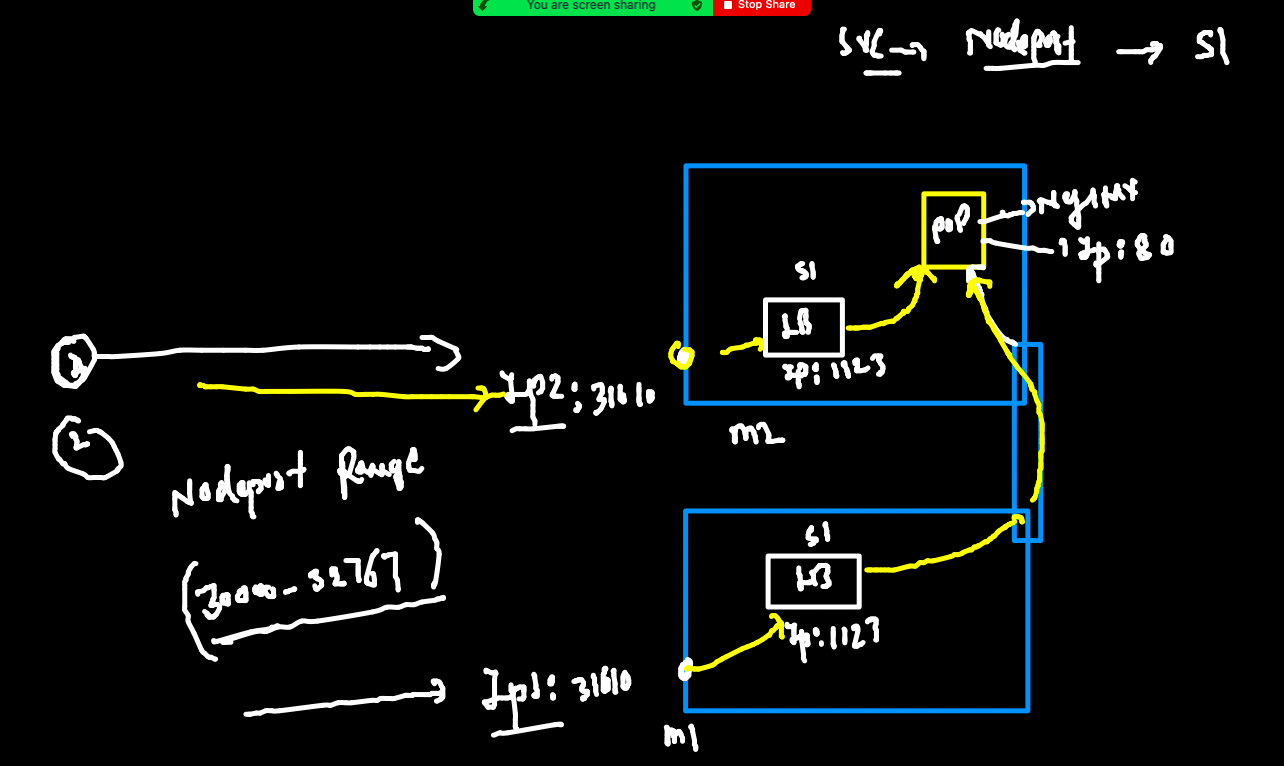 You are screen sharing
Stop Share
SVC → Nodeport → S1
POP
Nginx
Ip:80
S1
LB
Ip:1123
Ip2:31610
m2
2
Nodeport Range
(30000-32767)
S1
LB
Ip:1123
Ip1:31610
m1